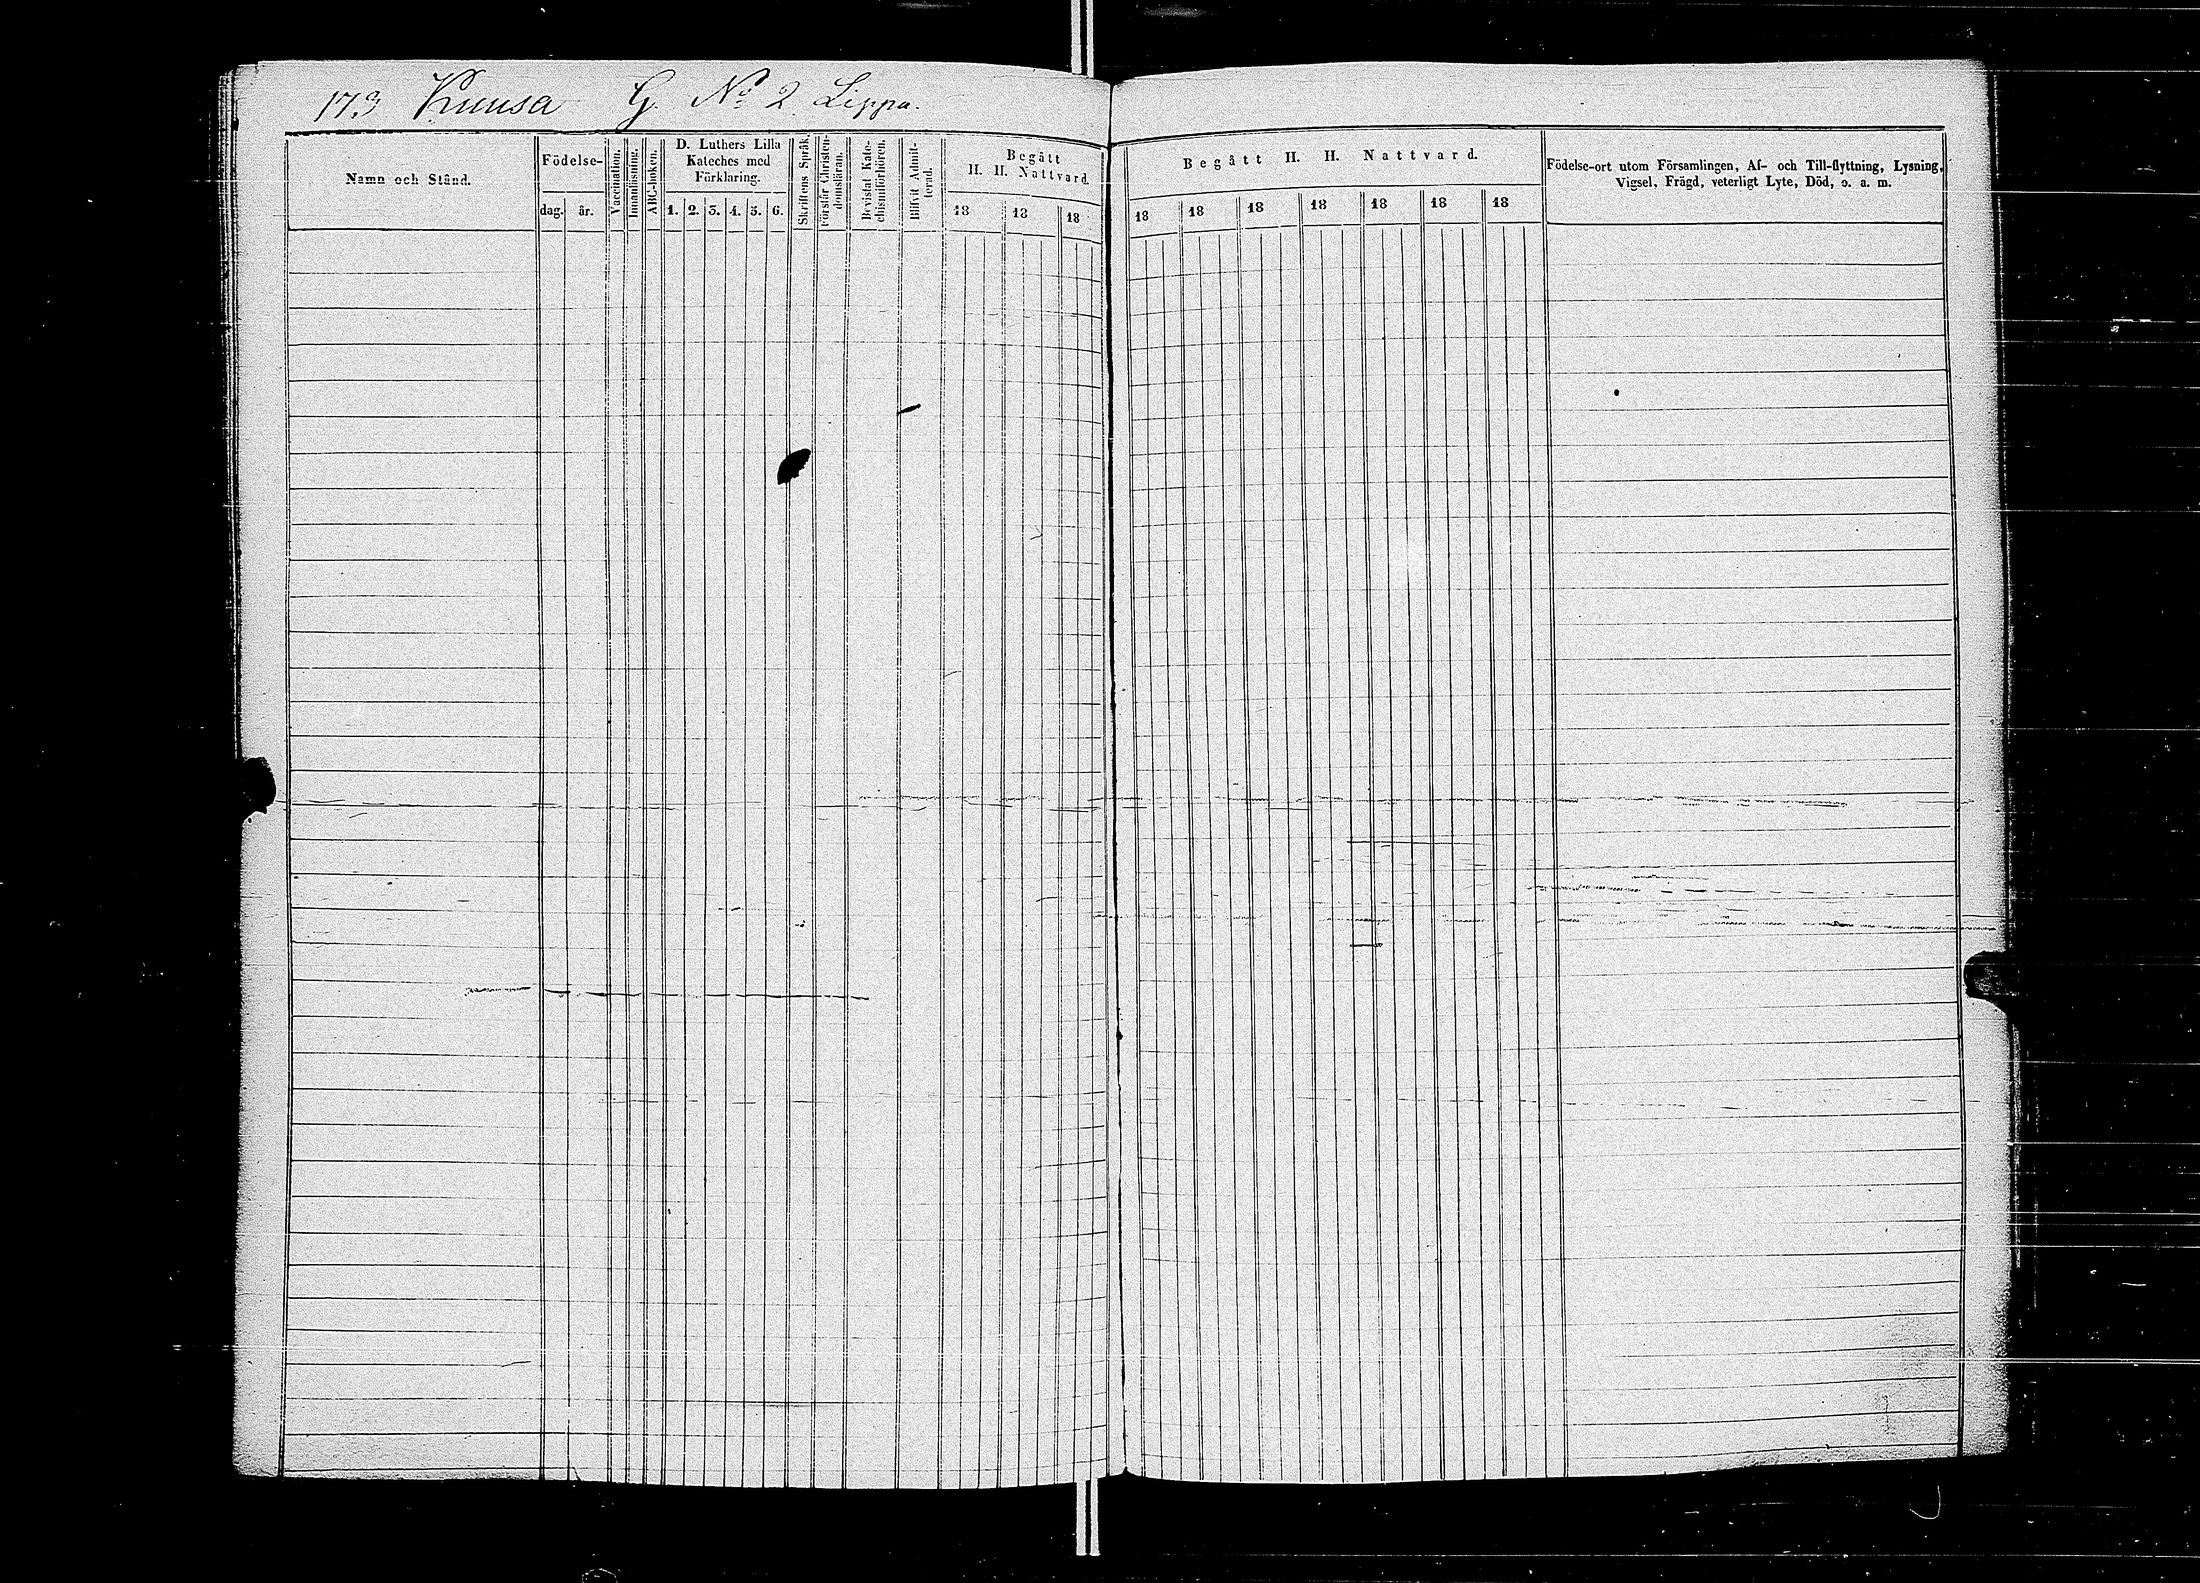 173 Kuusa G. No 2 Lippa.
Namn och Stånd.
Födelse-
dag. år.
Vaccination.
Innanläsning.
ABC-boken.
D. Luthers Lilla
Kateches med
Förklaring.
1. 2. 3. 4. 5. 6.
Skriftens Språk
Förstår Christen-
domsläran.
Bevistat Kate-
chismiförhören.
Blifvit Admit-
terad.
Begått
H. H. Nattvard.
18 18 18
Begått H. H. Nattvard.
18 18 18 18 18 18 18
Födelse-ort utom Församlingen, Af- och Till-flyttning, Lysning,
Vigsel, Frägd, veterligt Lyte, Död, o. a. m.